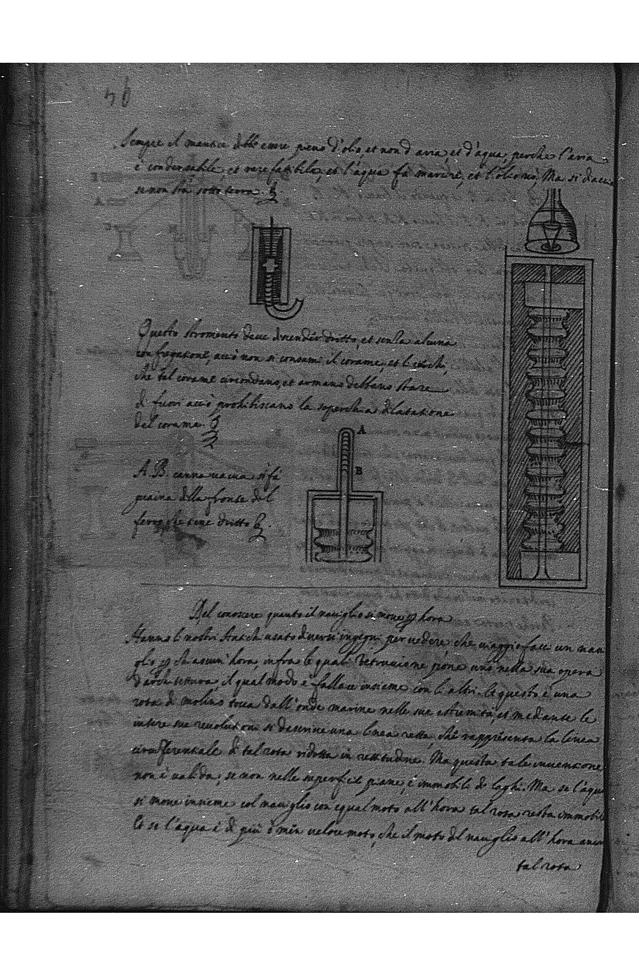 56
Sempre il mantice debbe essere pieno d'olio, et non d'aria, et d'acqua, perche l'aria
è condensabile, et rarefattibile, et l'aqua fa marcire, et
se non sta sotto terra.
Questo stromento deve descender dritto, et senza alcuna
confregatione, acciò non si consumi il corame, et li cerchi,
che tal corame circondano, et armano debbano stare
di fuori acciò prohibiscano la soperchia dilatatione
del corame.
A
B
A B. canna vacua si fà
guaina della fronte del
ferro che tiene dritto
Del conoscere quanto il naviglio si move per hora
Hanno li nostri Antichi usato diversi ingegni per vedere che viaggio facci un navi
glio per ciascun'hora, infra le quali Vetruvio ne pone uno nella sua opera
d'architettura, il qual modo è fallace insieme con li altri. et questo è una
rota di molino tocca dall'onde marine nelle sue estremità, et mediante le
intere sue revolutioni si descrive una linea retta, che rappresenta la linea
circonferentiale di tal rota ridotta in rettitudine. Ma questa tale inventione
non è valida, se non nelle superficii piane, è immobili di laghi. Ma se l'aqua
si move insieme col naviglio con equal moto all'hora tal rota resta immobile
Et se l'aqua è di più, ò men veloce moto, che il moto del naviglio all'hora ancora
tal rota